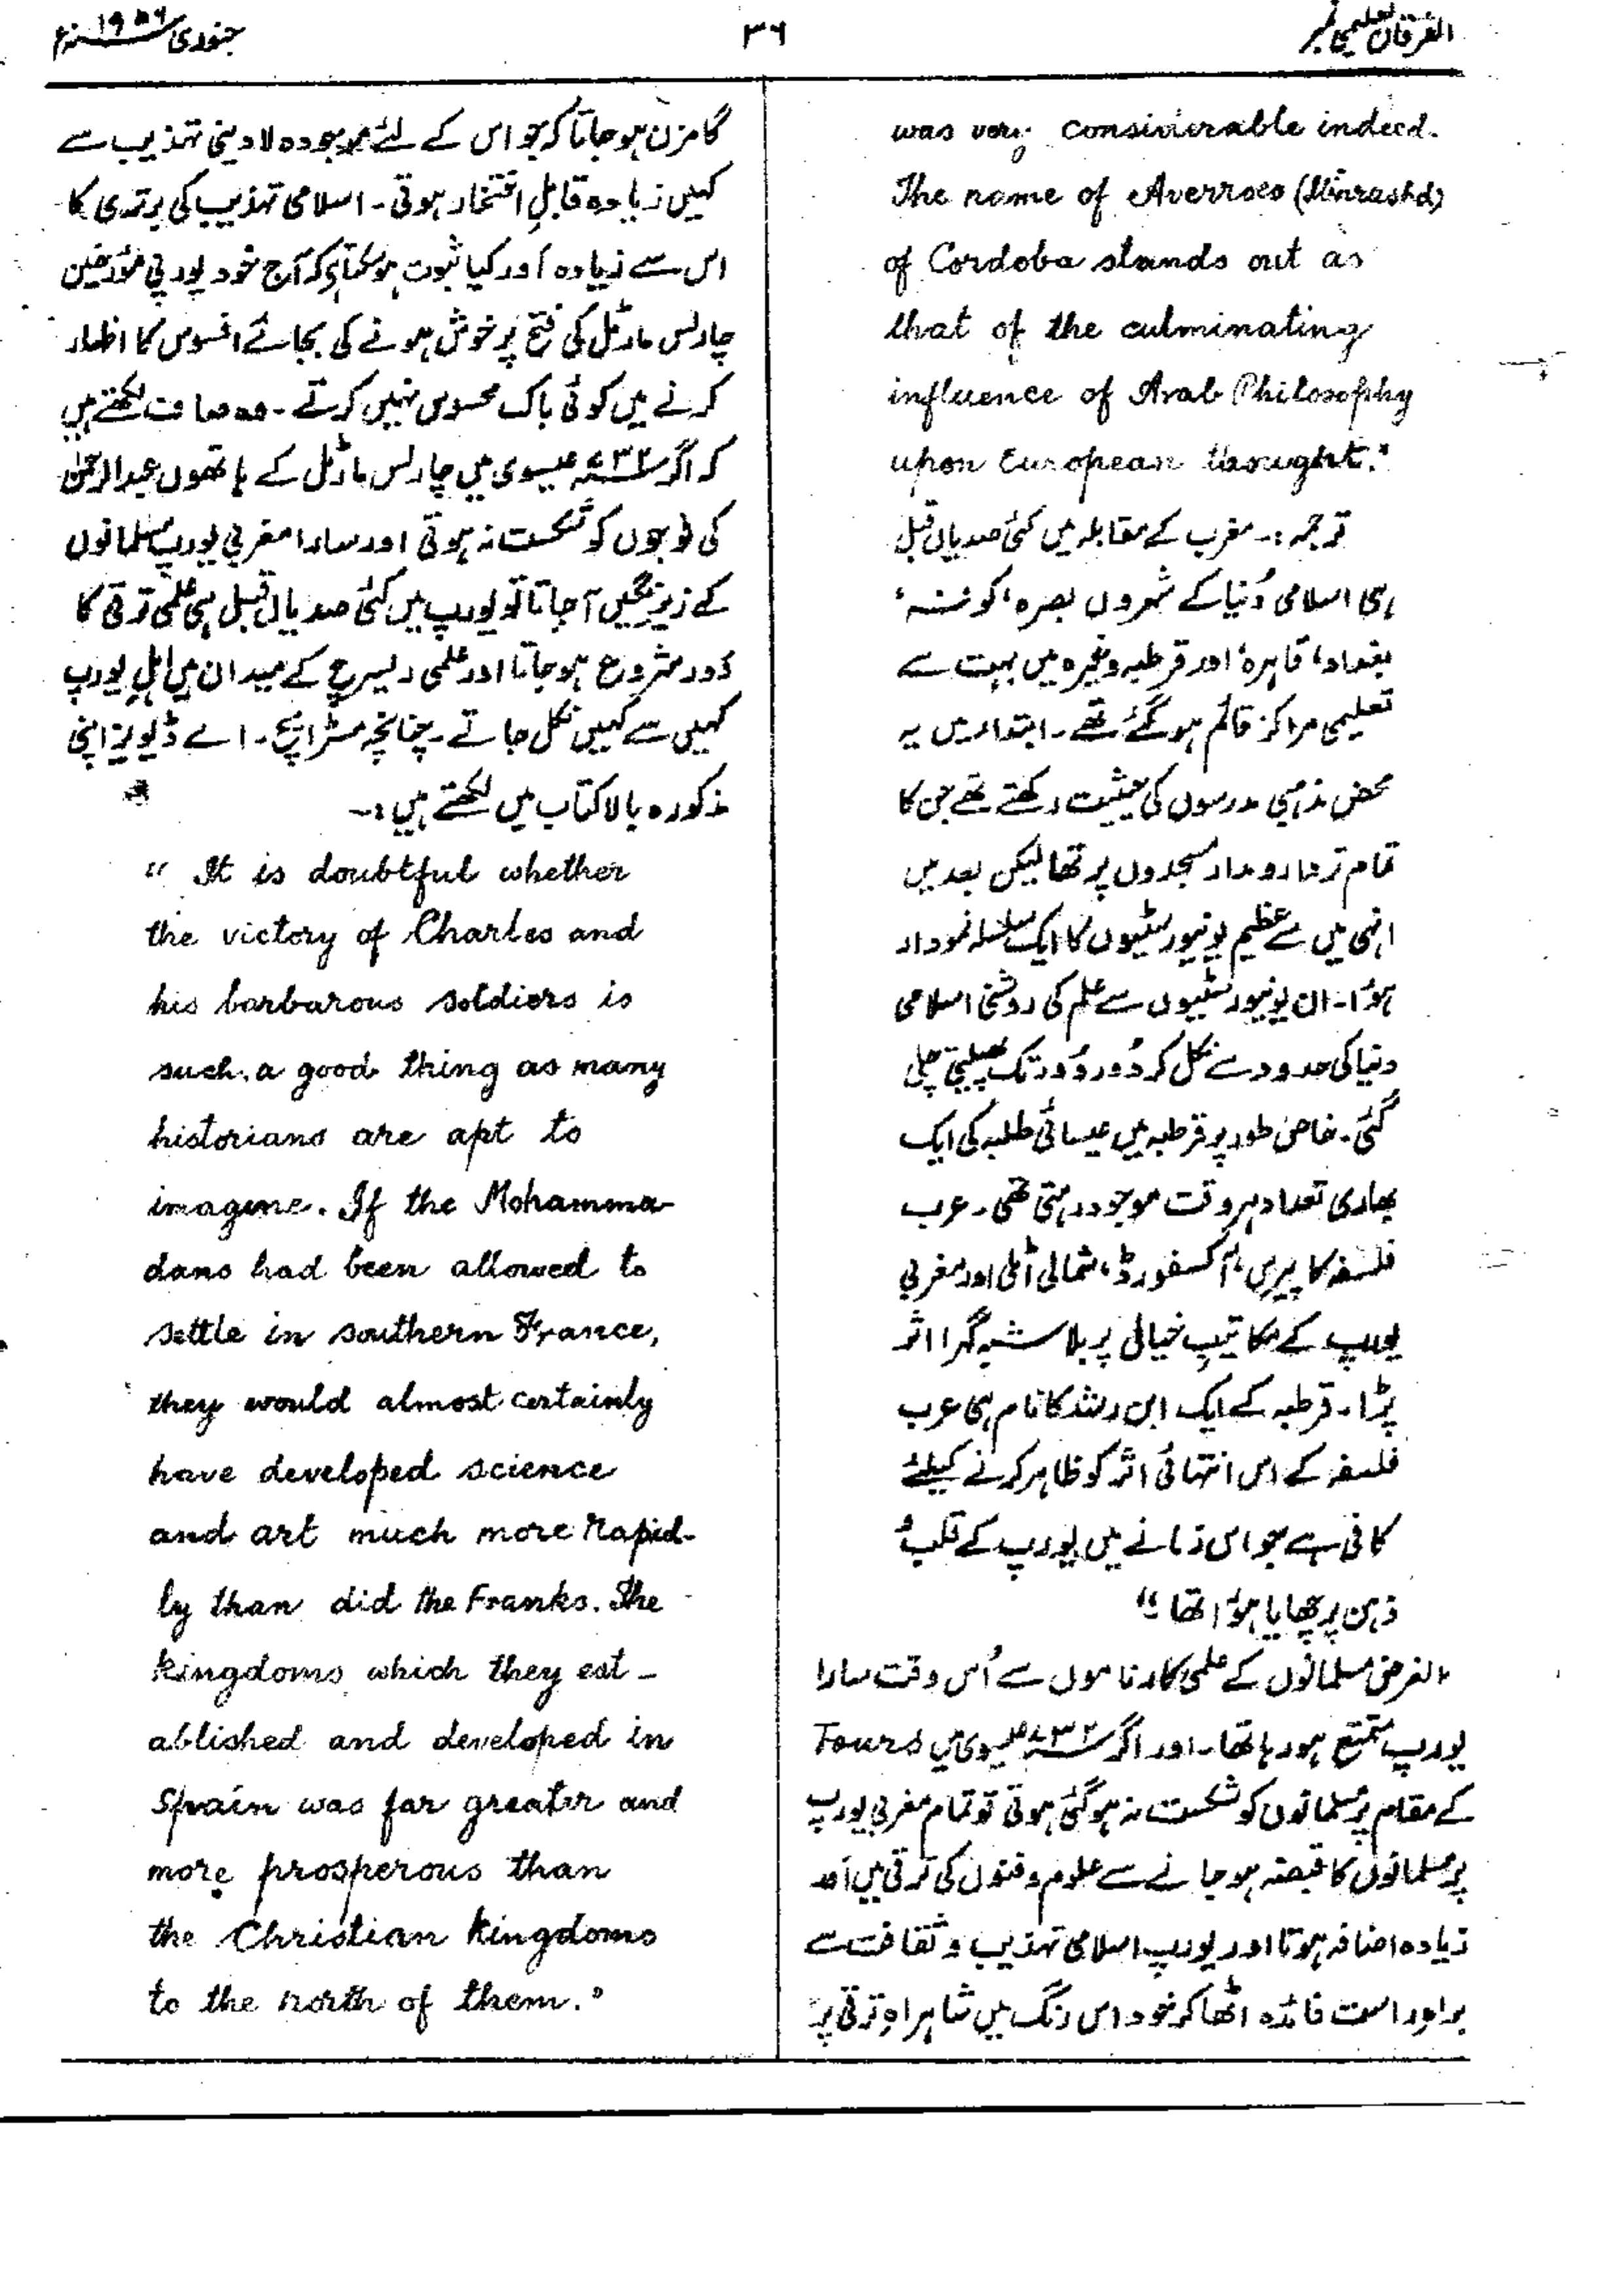 الفرقان تعلیمی نمبر
۳۶
جنوری ۱۹۵۶ء
was very considerable indeed.
The name of Averroes (Ibnrashd)
of Cordoba stands out as
that of the culminating
influence of Arab Philosophy
upon European thought."
ترجمہ :۔ مغرب کے مقابلہ میں کئی صدیاں قبل
ہی اسلامی دُنیا کے شہروں بصرہ، کوفہ،
بغداد، قاہرہ، اور قرطبہ وغیرہ میں بہت سے
تعلیمی مراکز قائم ہو گئے تھے۔ ابتداء میں یہ
محض مذہبی مدرسوں کی حیثیت رکھتے تھے جن کا
تمام تر دارومدار مسجدوں پر تھا لیکن بعد میں
انہی میں سے عظیم یونیورسٹیوں کا ایک سلسلہ نمودار
ہؤا۔ ان یونیورسٹیوں سے علم کی روشنی اسلامی
دنیا کی حدود سے نکل کر دُور دُور تک پھیلتی چلی
گئی۔ خاص طور پر قرطبہ میں عیسائی طلبہ کی ایک
بھاری تعداد ہر وقت موجود رہتی تھی۔ عرب
فلسفہ کا پیرس، آکسفورڈ، شمالی اٹلی اور مغربی
یورپ کے مکاتیبِ خیال پر بلا شبہ گہرا اثر
پڑا۔ قرطبہ کے ایک ابن رشد کا نام ہی عرب
فلسفہ کے اس انتہائی اثر کو ظاہر کرنے کیلئے
کافی ہے جو اس زمانے میں یورپ کے قلب و
ذہن پر چھایا ہؤا تھا"
الغرض مسلمانوں کے علمی کارناموں سے اُس وقت سارا
یورپ متمتع ہو رہا تھا۔ اور اگر ۷۳۲ء عیسوی میں Tours
کے مقام پر مسلمانوں کو شکست نہ ہو گئی ہوتی تو تمام مغربی یورپ
پر مسلمانوں کا قبضہ ہو جانے سے علوم و فنون کی ترقی میں اَور
زیادہ اضافہ ہوتا اور یورپ اسلامی تہذیب و ثقافت سے
براہِ راست فائدہ اٹھا کر خود اس رنگ میں شاہراہِ ترقی پر
گامزن ہو جاتا کہ جو اس کے لئے موجودہ لادینی تہذیب سے
کہیں زیادہ قابلِ افتخار ہوتی۔ اسلامی تہذیب کی برتری کا
اس سے زیادہ اَور کیا ثبوت ہو سکتا ہے کہ آج خود یورپی مؤرخین
چارلس مارٹل کی فتح پر خوش ہونے کی بجائے افسوس کا اظہار
کرنے میں کوئی باک محسوس نہیں کرتے۔ وہ صاف لکھتے ہیں
کہ اگر ۷۳۲ء عیسوی میں چارلس مارٹل کے ہاتھوں عبدالرحمٰن
کی فوجوں کو شکست نہ ہوتی اور سارا مغربی یورپ مسلمانوں
کے زیرِنگیں آ جاتا تو یورپ میں کئی صدیاں قبل ہی علمی ترقی کا
دَور شروع ہو جاتا اور علمی ریسرچ کے میدان میں اہلِ یورپ
کہیں سے کہیں نکل جاتے۔ چنانچہ مسٹر ایچ۔ اے ڈیویز اپنی
مذکورہ بالا کتاب میں لکھتے ہیں :۔
" It is doubtful whether
the victory of Charles and
his barbarous soldiers is
such a good thing as many
historians are apt to
imagine. If the Mohamma-
dans had been allowed to
settle in southern France,
they would almost certainly
have developed science
and art much more rapid-
ly than did the Franks. The
kingdoms which they est-
ablished and developed in
Spain was far greater and
more prosperous than
the Christian kingdoms
to the north of them."